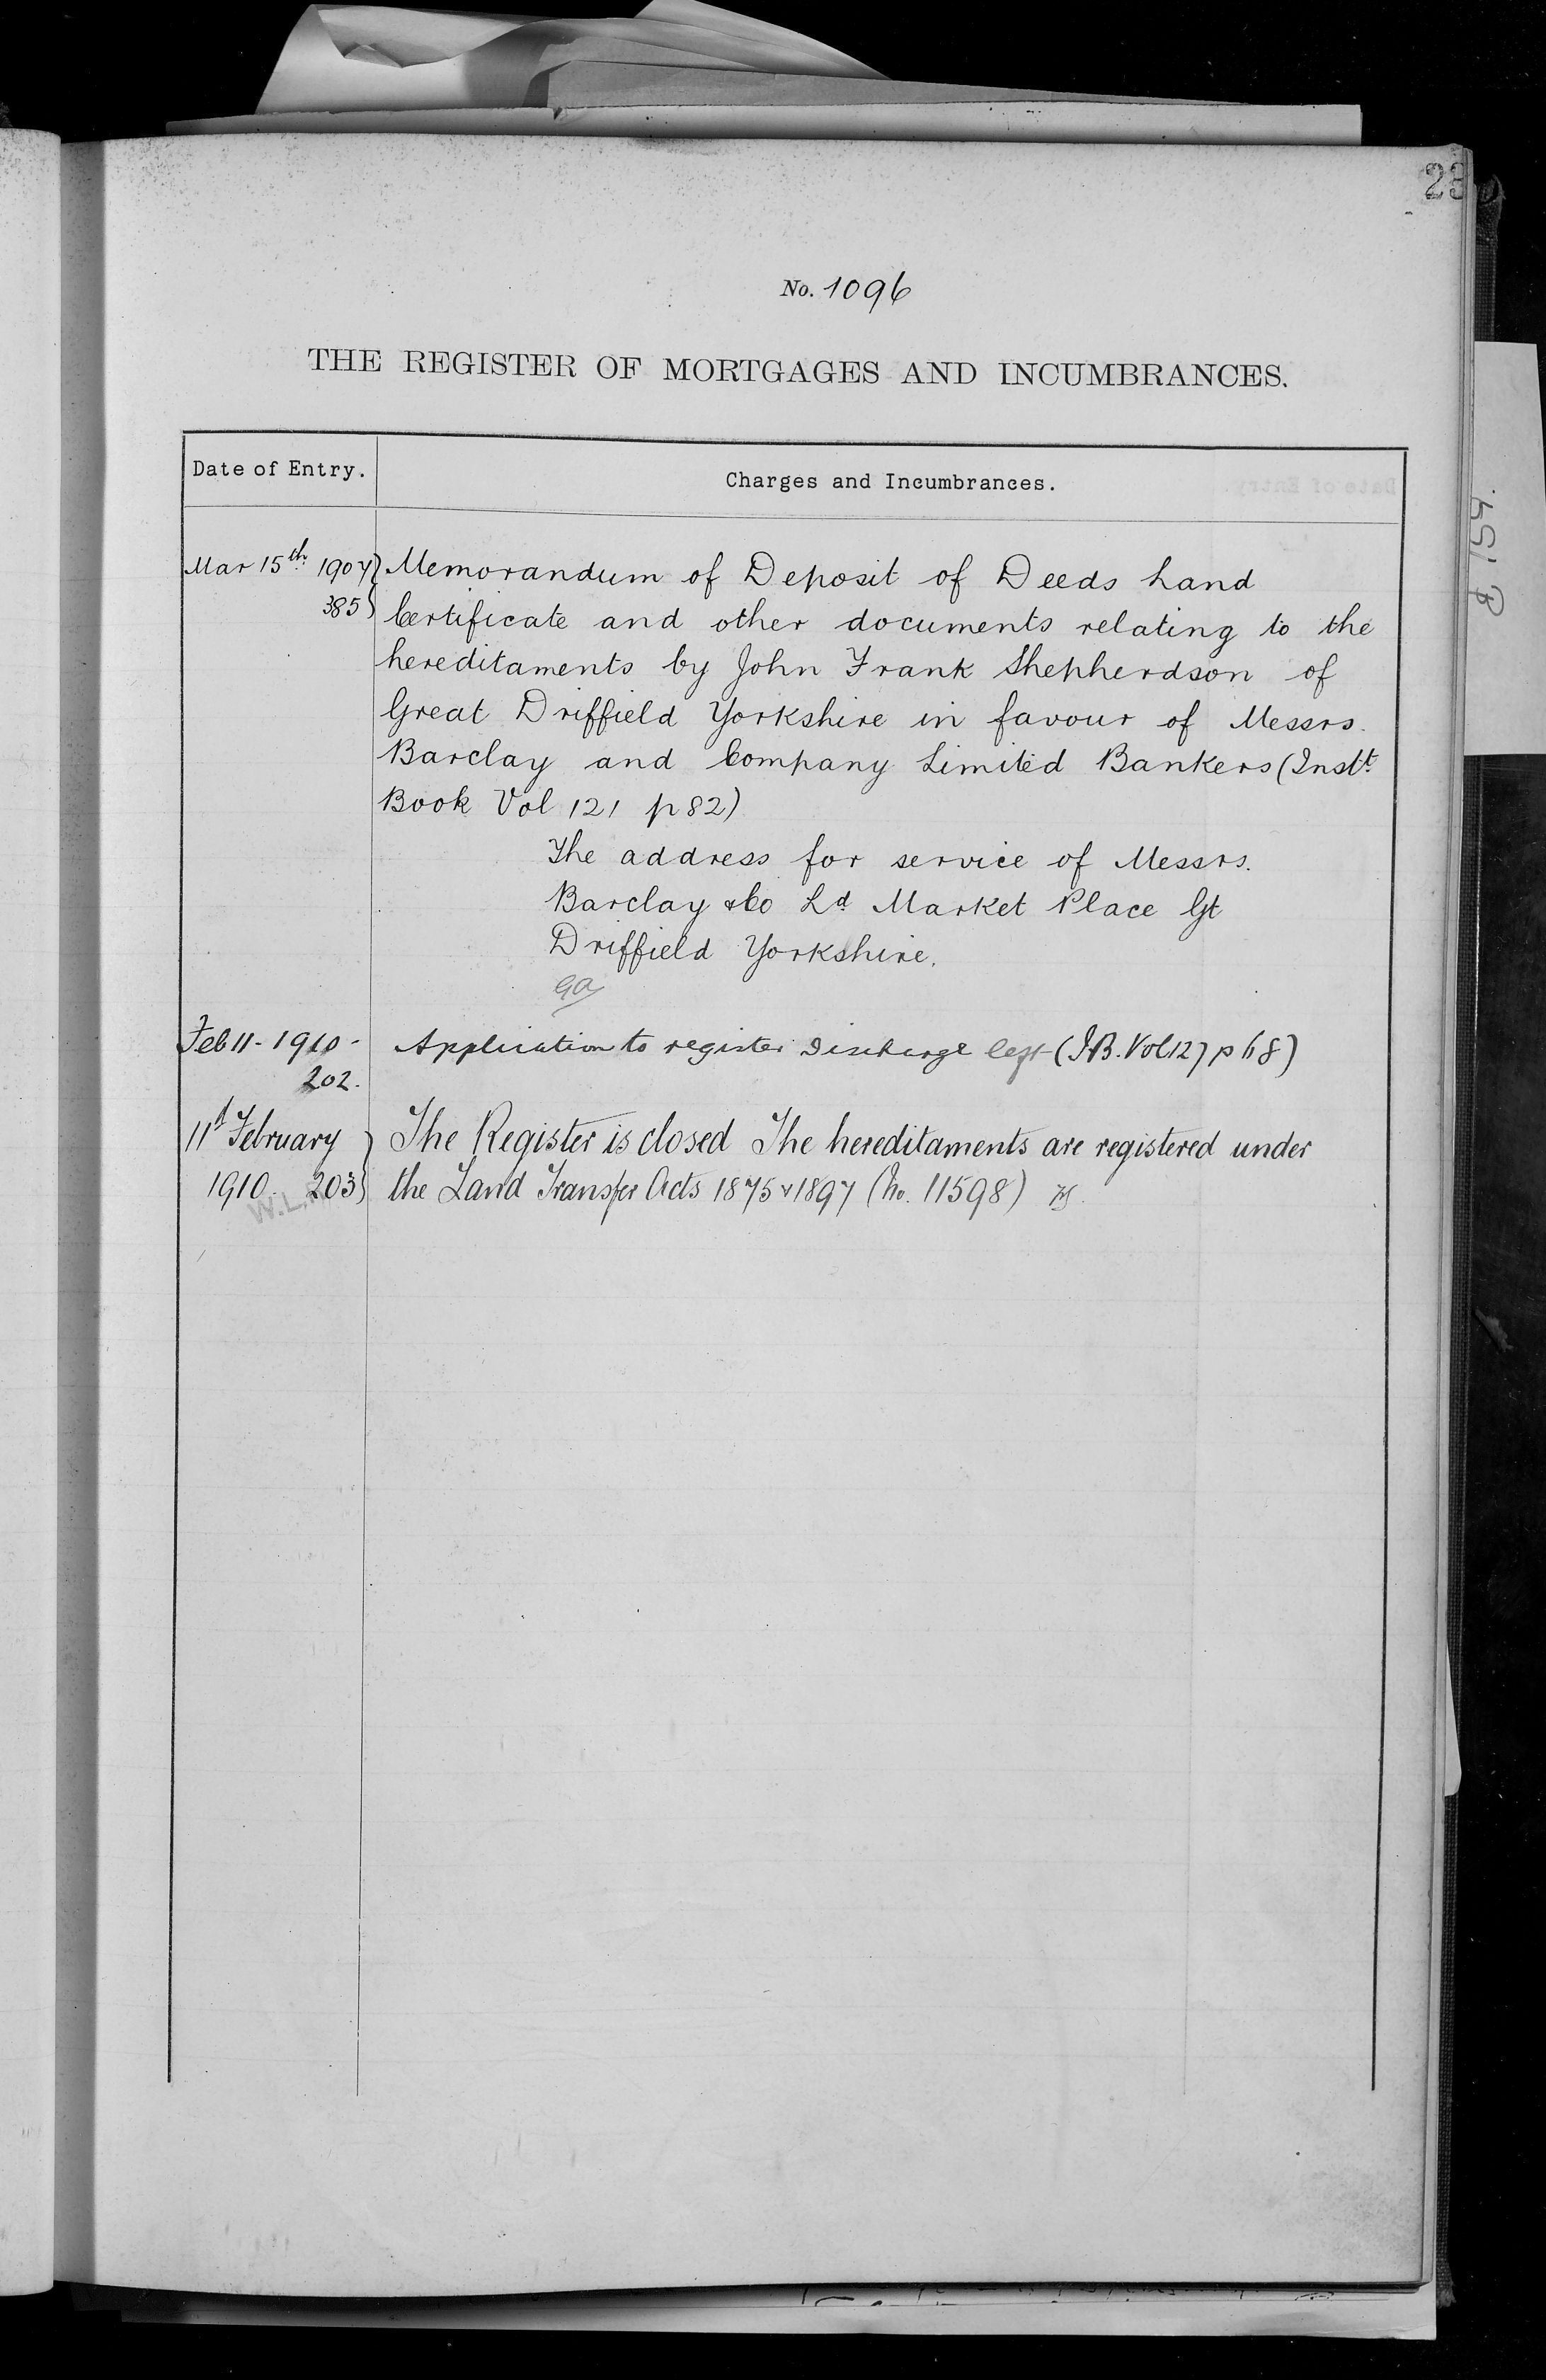 23
No. 1096
THE REGISTER OF MORTGAGES AND INCUMBRANCES.
Date of Entry.
Charges and Incumbrances.
Mar 15th 1907 Memorandum of Deposit of Deeds Land
385 Certificate and other documents relating to the
hereditaments by John Frank Shepherdson of
Great Driffield Yorkshire in favour of Messrs.
Barclay and Company Limited Bankers (Instt.
Book Vol 121 p 82)
The address for service of Messrs.
Barclay & Co Ld Market Place Gt
Driffield Yorkshire.
Feb 11 - 1910 - Application to register Discharge left (I.B. Vol 127 p 68)
202.
11th February The Register is closed The hereditaments are registered under
1910. 203 the Land Transfer Acts 1875 & 1897 (No. 11598)
P 159.